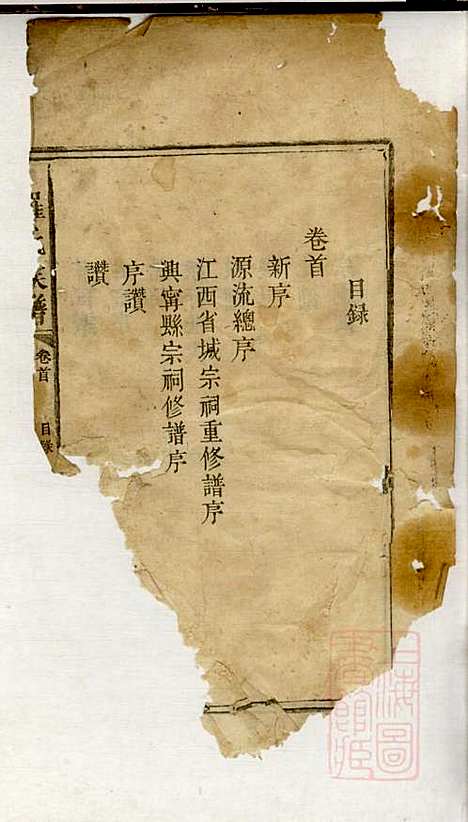 目録
卷首
新序
源流總序
江西省城宗祠重修譜序
興寧縣宗祠修譜序
序讚
讚
羅氏族譜
卷首
目録
上海圖書館藏